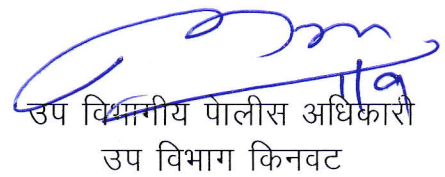 उप विभागीय पेालीस अधिकारी
उप विभाग किनवट